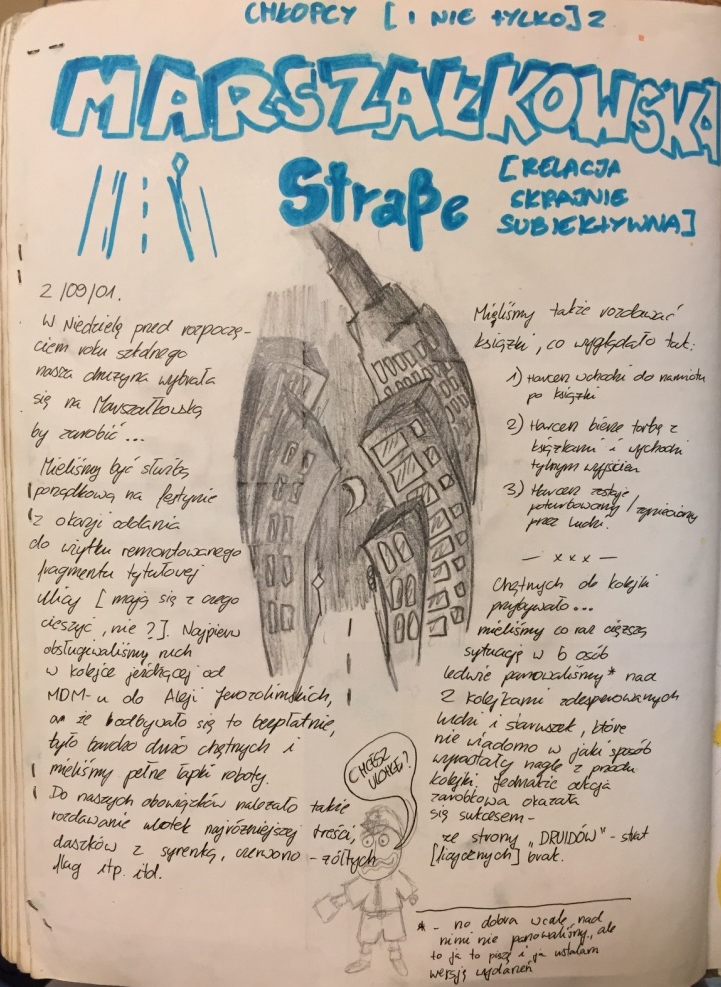 CHŁOPCY [I NIE TYLKO] Z
MARSZAŁKOWSKA
Straβe
[RELACJA
SKRAJNIE
SUBIEKTYWNA]
2/09/01.
W Niedzielę przed rozpoczę-
ciem roku szkolnego
nasza drużyna wybrała
się na Marszałkowską
by zarobić...
Mieliśmy być służbą
porządkową na festynie
z okazji oddania
do użytku remontowanego
fragmentu tytułowej
ulicy [mają się z czego
cieszyć, nie?]. Najpierw
obsługiwaliśmy ruch
w kolejce jeżdżącej od
MDM-u do Aleji Jerozolimskich,
a że odbywało się to bezpłatnie,
było bardzo dużo chętnych i
mieliśmy pełne łapki roboty.
Do naszych obowiązków należało także
rozdawanie ulotek najróżniejszej treści,
daszków z syrenką, czerwono-żółtych
flag itp. itd.
Mieliśmy także rozdawać
książki, co wyglądało tak:
1) Harcerz wchodzi do namiotu
po książki
2) Harcerz bierze torbę z
książkami i wychodzi
tylnym wyjściem
3) Harcerz zostaje
poturbowany/zgnieciony
przez ludzi.
— x x x —
Chętnych do kolejki
przybywało...
mieliśmy co raz cięższą
sytuację w 6 osób
ledwie panowaliśmy* nad
2 kolejkami zdesperowanych
ludzi i staruszek, które
nie wiadomo w jaki sposób
wyrastały nagle z przodu
kolejki. Jednakże akcja
zarobkowa okazała
się sukcesem-
ze strony „DRUIDÓW" - strat
[licycznych] brak.
CHCESZ
ULOTKĘ?
* - no dobra wcale nad
nimi nie panowaliśmy, ale
to ja to piszę i ja ustalam
wersję wydarzeń